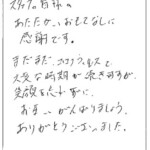 スタッフの皆様の
あたたかいおもてなしに
感謝です。
まだまだ、コロナウィルスで
大変な時期が続きますが、
笑顔を忘れずに、
お互いがんばりましょう。
ありがとうございました。